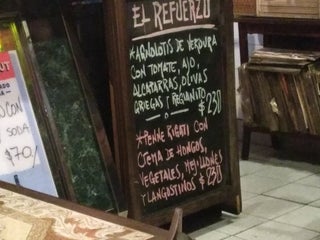 EL REFUERZO
*AGNOLOTIS DE VERDURA
CON TOMATE, AJO,
ALCAPARRAS, OLIVAS
GRIEGAS Y PEPIANITO
$230
*PENNE RIGATI CON
CREMA DE HONGOS,
VEGETALES, MEJILLONES
Y LANGOSTINOS $230
CON
SODA
$70/